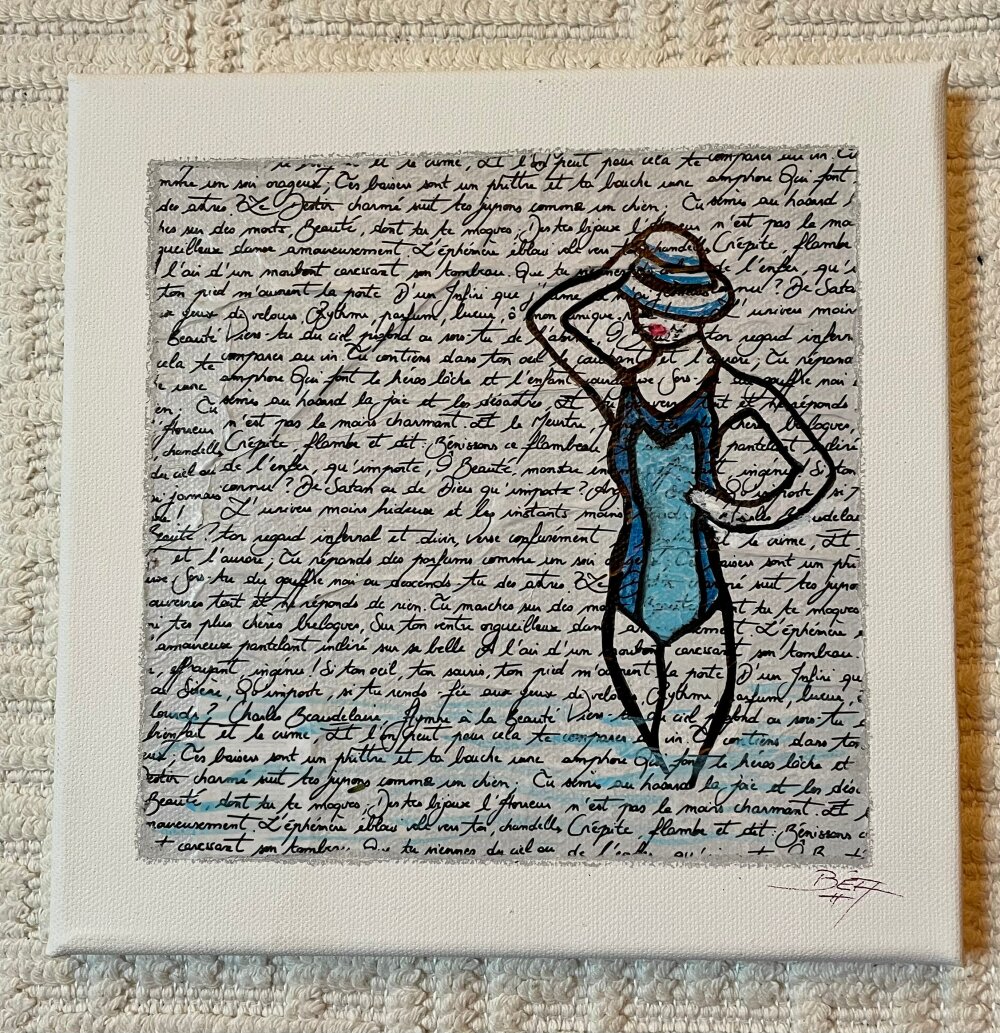 et le crime, Et l'on peut pour cela te comparer au vin. Tu
un soir orageux; Tes baisers sont un philtre et ta bouche une amphore Qui font
des astres? Le Destin charmé suit tes jupons comme un chien; Tu sèmes au hasard l
hes sur des morts, Beauté, dont tu te moques; Des tes bijoux l'Horreur n'est pas le mo
gueilleux danse amoureusement. L'éphémère ébloui vole vers toi, chandelle, Crépite, flambe
l'air d'un moribond caressant son tombeau. Que tu viennes de l'enfer, qu'i
ton pied m'ouvrent la porte D'un Infini que j'aime connu? De Satan
ux yeux de velours, Rythme, parfum, lueur, ô mon unique univers moin
Beauté Viens-tu du ciel profond ou sors-tu de l'abîme, O Beauté ton regard infern
cela te comparer au vin. Tu contiens dans ton oeil le couchant et l'aurore; Tu répand
e une amphore Qui font le héros lâche et l'enfant courageux Sors-tu du gouffre noir
en; Tu sèmes au hasard la joie et les désastres, Et tu gouvernes tout et ne réponds
l'Horreur n'est pas le moins charmant. Et le Meurtre, chères breloques,
, chandelle, Crépite, flambe et dit: Bénissons ce flambeau pantelant incliné
du ciel ou de l'enfer, qu'importe, O Beauté, monstre ingénu! Si ton
si jamais connu? De Satan ou de Dieu qu'importe? importe, si
! L'univers moins hideux et les instants moins Beaudelaire
Beauté? ton regard infernal et divin, verse confusément et le crime, Et
et l'aurore; Tu répands des parfums comme un soir orageux; Tes baisers sont un ph
use Sors-tu du gouffre noir ou descends-tu des astres? Le charmé suit tes jupon
ouvernes tout et ne réponds de rien. Tu marches sur des mo nt tu te moques
i tes plus chères breloques, Sur ton ventre orgueilleux dans amoureusement. L'éphémère é
amoureux pantelant incliné sur sa belle A l'air d'un moribond caressant son tombeau.
, effrayant, ingénu! Si ton oeil, ton souris, ton pied m'ouvrent la porte D'un Infini qu
ou Sirène, Qu'importe, si tu rends fée aux yeux de velours, Rythme, parfum, lueur, ô
lourds? Charles Beaudelaire, Hymne à la Beauté Viens-tu du ciel profond ou sors-tu d
bienfait et le crime, Et l'on peut pour cela te comparer au vin. Tu contiens dans ton
eux; Tes baisers sont un philtre et ta bouche une amphore Qui font le héros lâche et
estin charmé suit tes jupons comme un chien; Tu sèmes au hasard la joie et les dés
Beauté, dont tu te moques; Des tes bijoux l'Horreur n'est pas le moins charmant. Et
moureusement. L'éphémère ébloui vole vers toi, chandelle, Crépite, flambe et dit: Bénissons c
caressant son tombeau. Que tu viennes du ciel ou de l'enfer, qu'i
BÉA